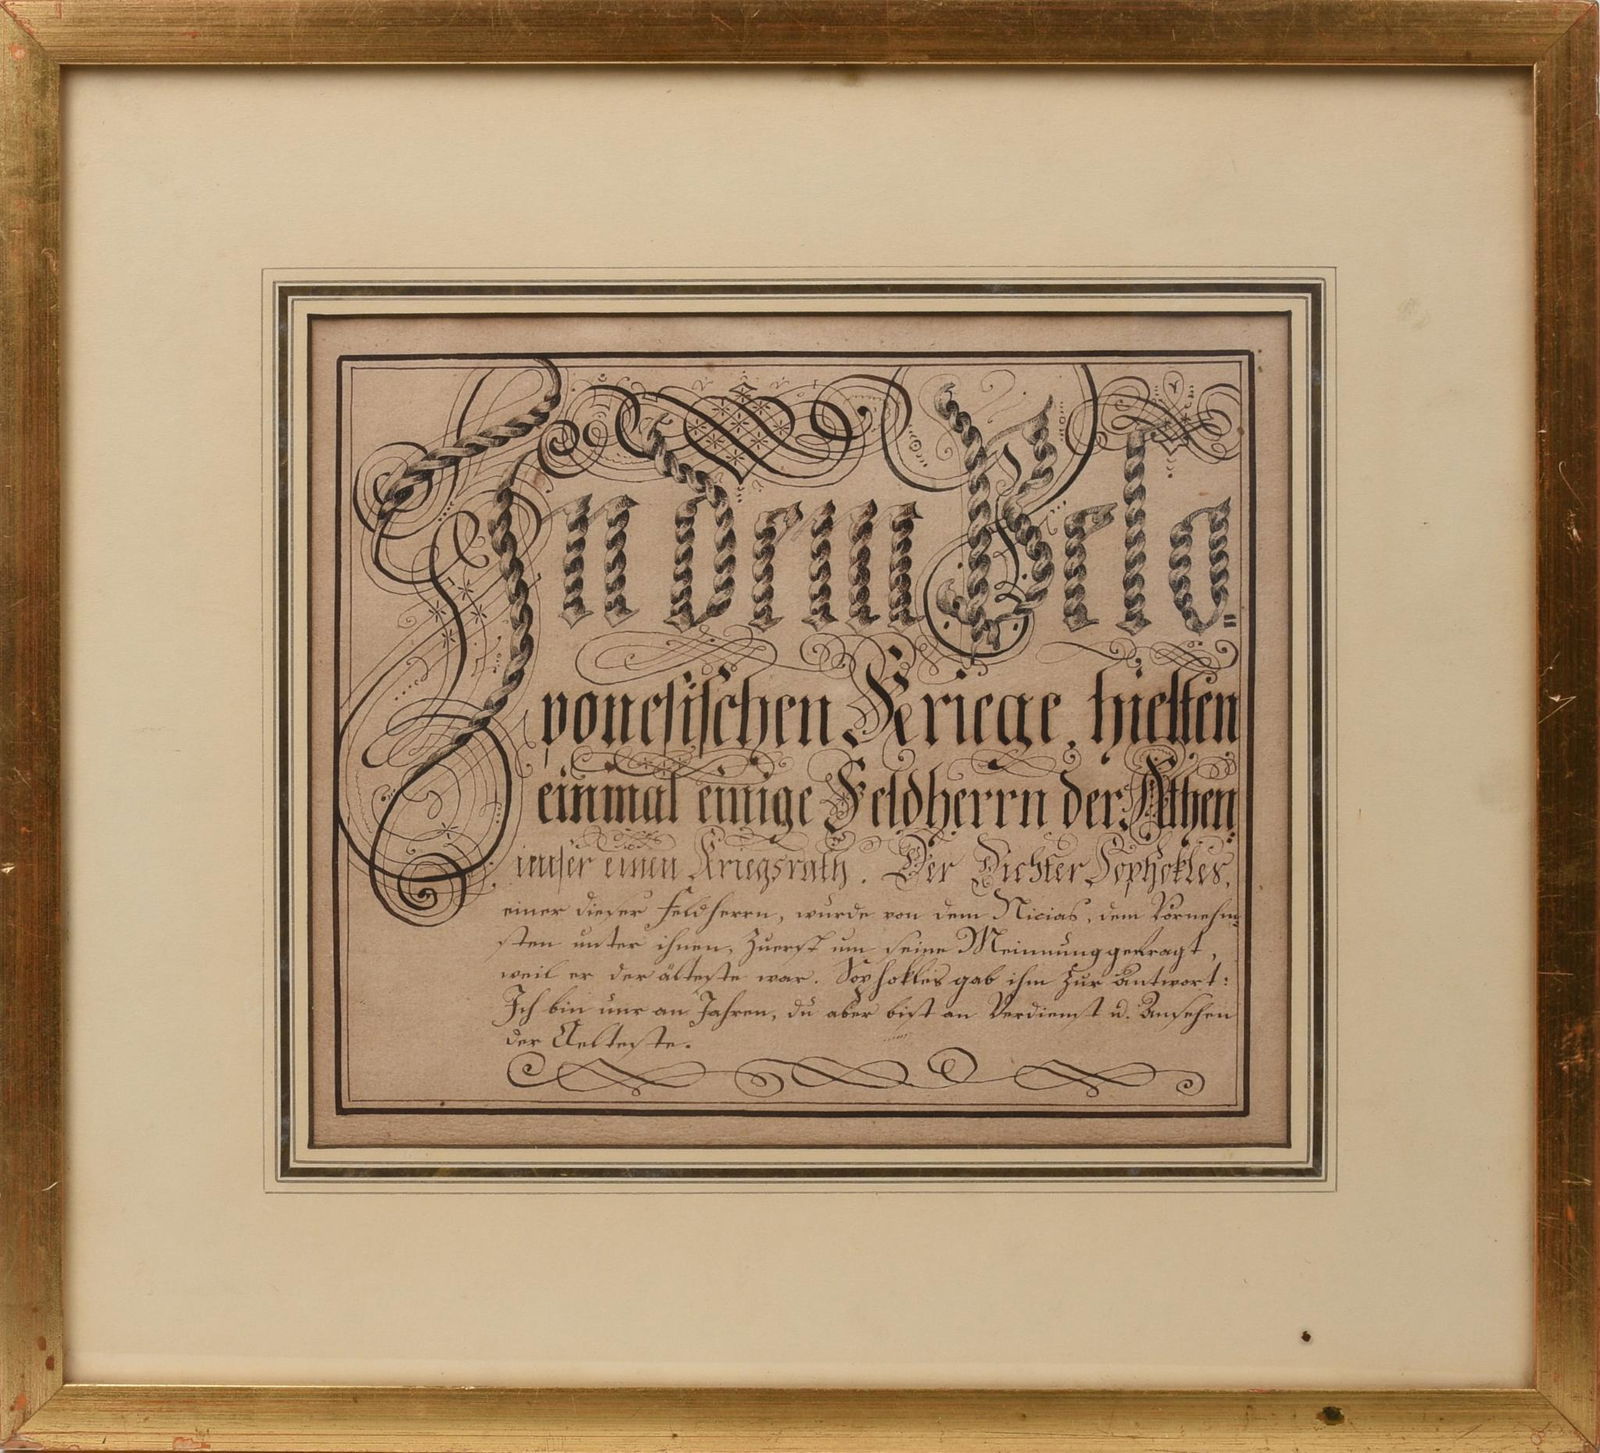 In dem Pelo=
ponesischen Kriege, hielten
einmal einige Feldherrn der Athen
ienser einen Kriegsrath. Der Dichter Sophokles,
einer dieser Feldherrn, wurde von dem Nicias, dem Vornehm=
sten unter ihnen, zuerst um seine Meinnung gefragt,
weil er der älteste war. Sophokles gab ihm zur Antwort:
Ich bin nur an Jahren, du aber bist an Verdienst u. Ansehen
der Aelteste.